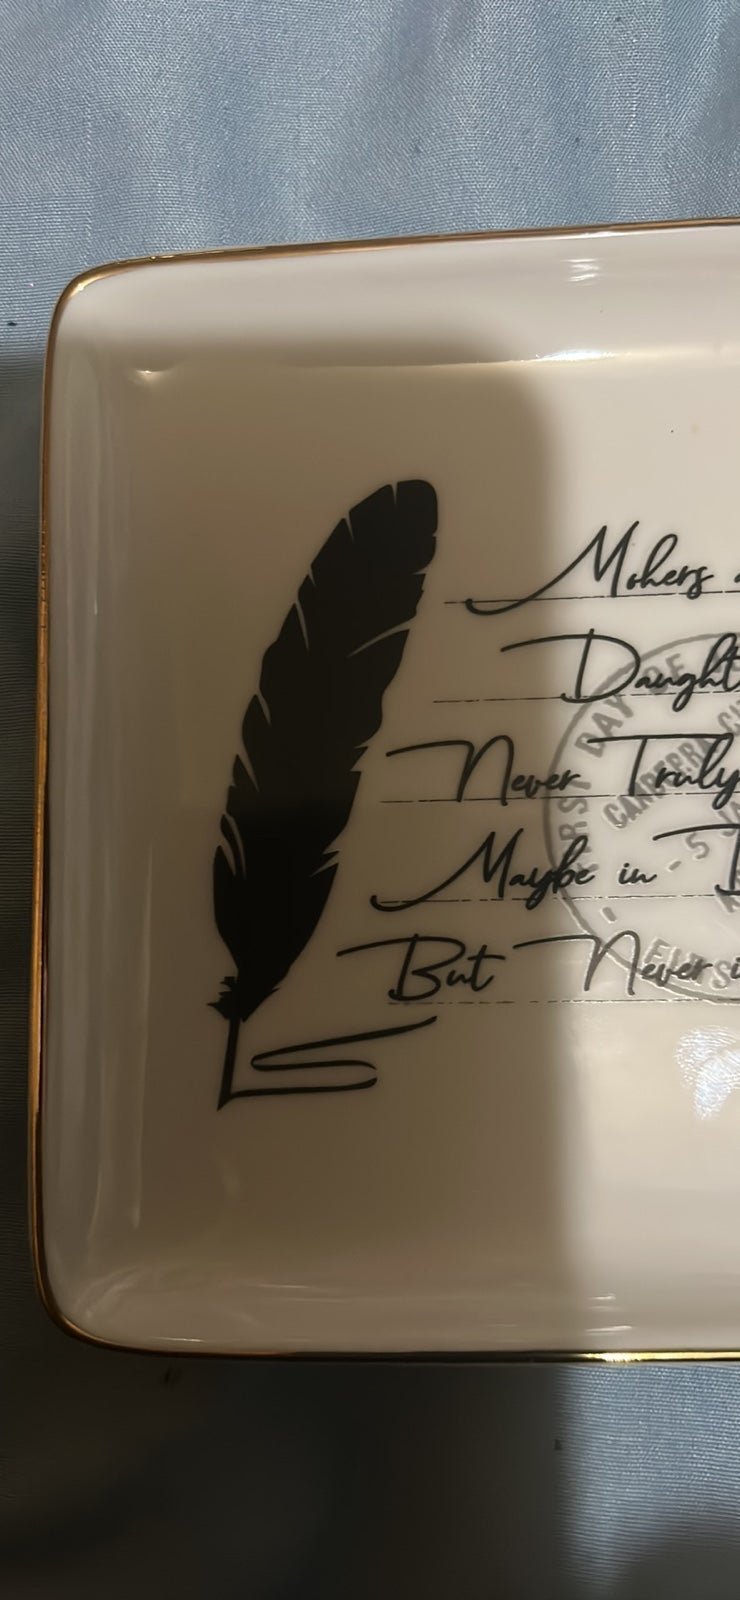 Mohers
Daught
Never Truly
Maybe in
But Never
FIRST DAY OF
CANBERRA CIT
- 5 JA